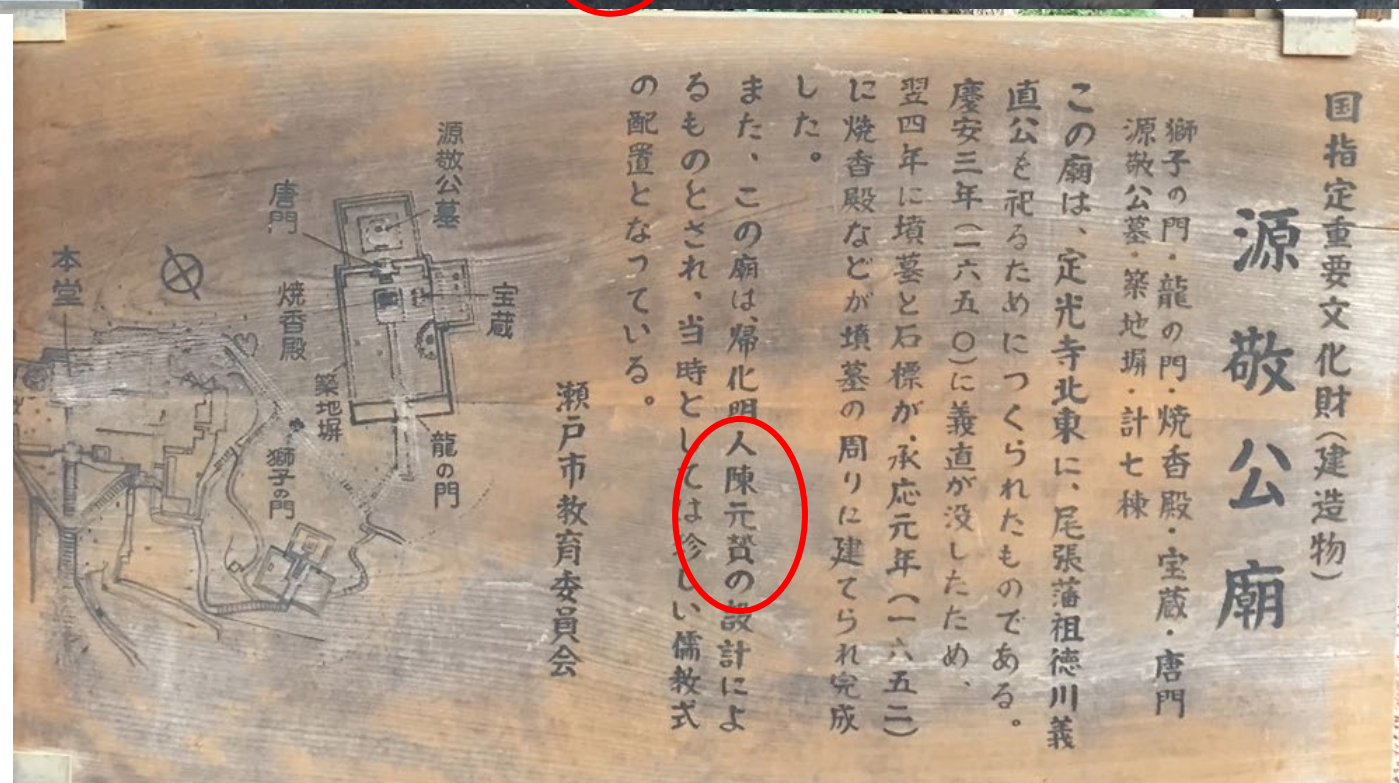 国指定重要文化財(建造物)
源敬公廟
獅子の門・龍の門・焼香殿・宝蔵・唐門
源敬公墓・築地塀・計七棟
この廟は、定光寺北東に、尾張藩祖徳川義
直公を祀るためにつくられたものである。
慶安三年(一六五〇)に義直が没したため、
翌四年に墳墓と石標が、承応元年(一六五二)
に焼香殿などが墳墓の周りに建てられ完成
した。
また、この廟は、帰化明人陳元贇の設計によ
るものとされ、当時としては珍しい儒教式
の配置となっている。
瀬戸市教育委員会
源敬公墓
唐門
宝蔵
焼香殿
築地塀
龍の門
獅子の門
本堂